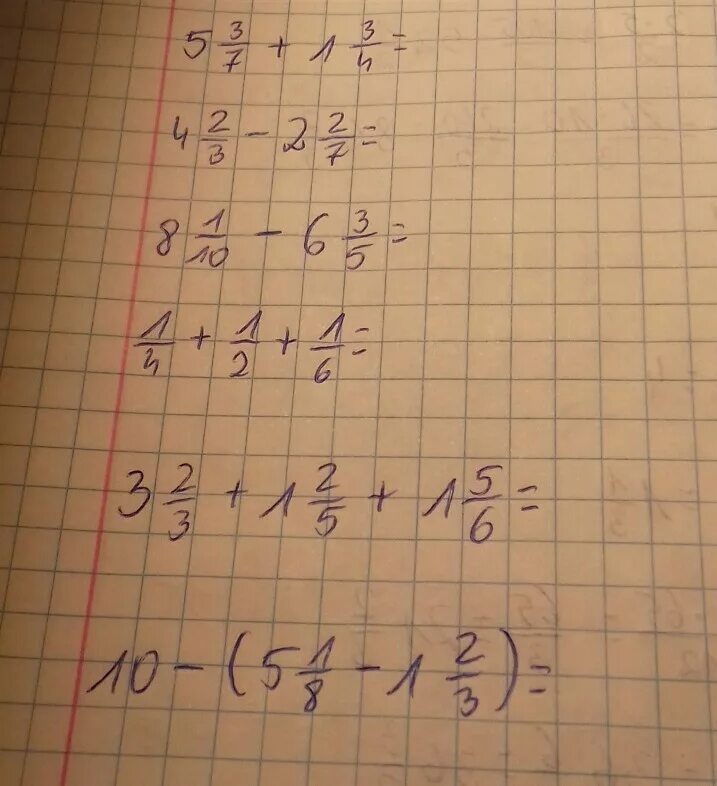 5 3/7 + 1 3/4 =
4 2/3 - 2 2/7 =
8 1/10 - 6 3/5 =
1/4 + 1/2 + 1/6 =
3 2/3 + 1 2/5 + 1 5/6 =
10 - (5 1/8 - 1 2/3) =